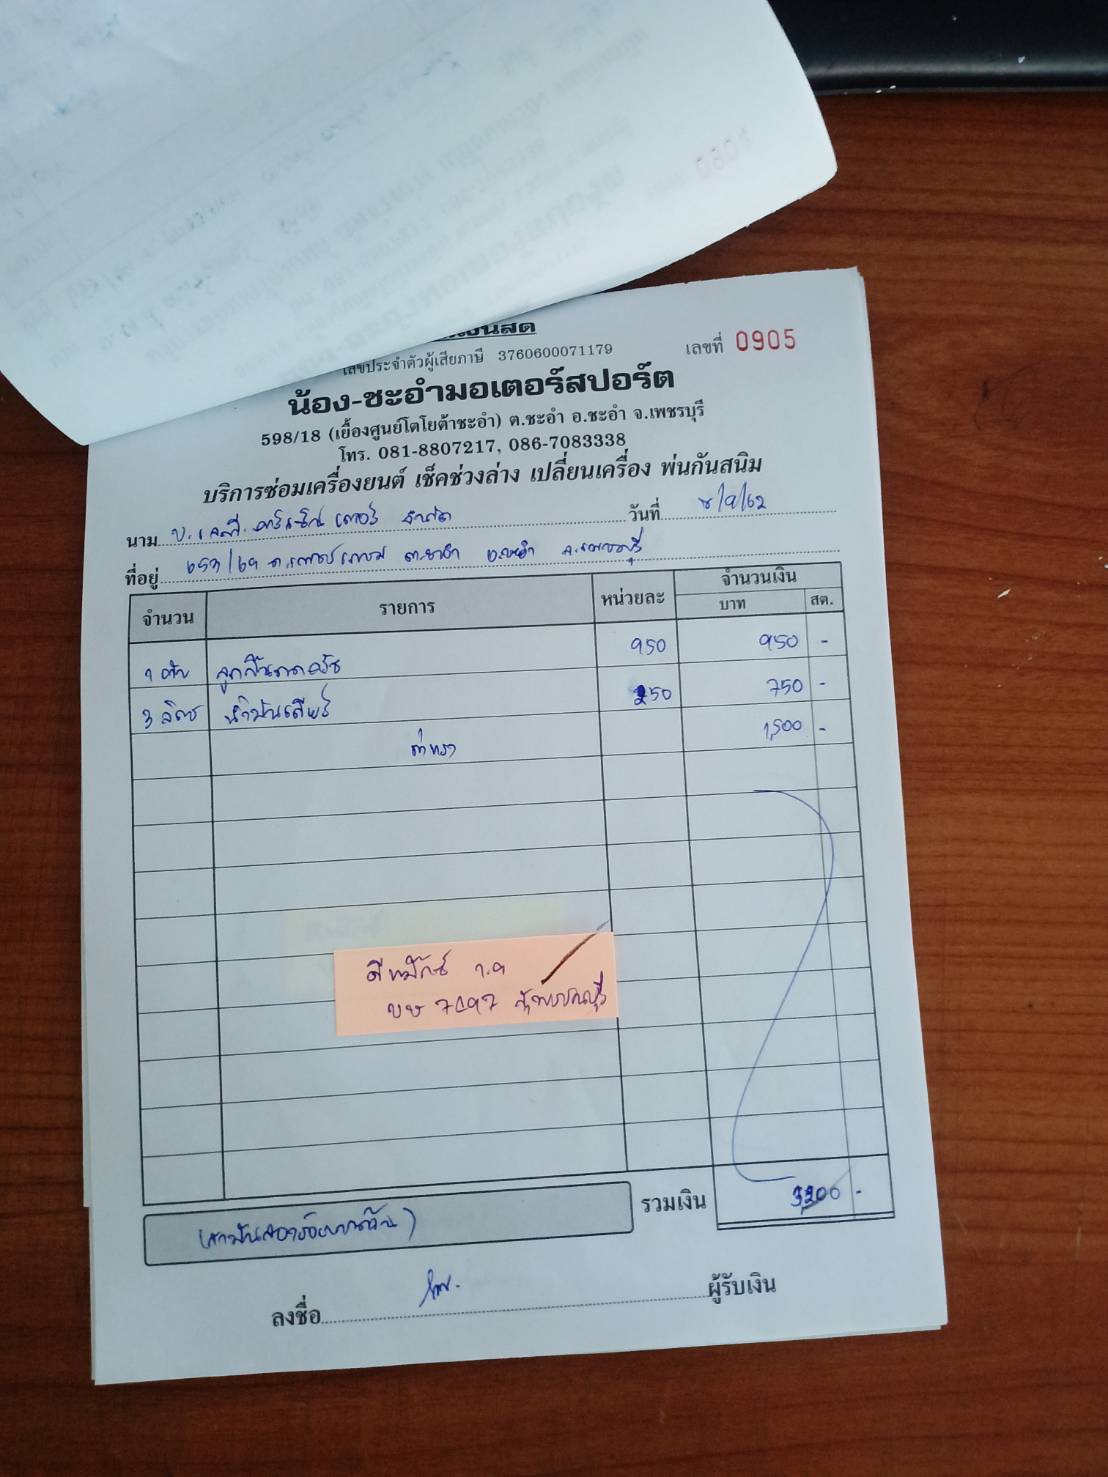 เงินสด
เลขประจำตัวผู้เสียภาษี 3760600071179
เลขที่ 0905
น้อง-ชะอำมอเตอร์สปอร์ต
598/18 (เยื้องศูนย์โตโยต้าชะอำ) ต.ชะอำ อ.ชะอำ จ.เพชรบุรี
โทร. 081-8807217, 086-7083338
บริการซ่อมเครื่องยนต์ เช็คช่วงล่าง เปลี่ยนเครื่อง พ่นกันสนิม
นาม บ. จำกัด วันที่ /9/62
ที่อยู่ ถ.เพชรเกษม ต.ชะอำ อ.ชะอำ จ.เพชรบุรี
จำนวน รายการ หน่วยละ จำนวนเงิน
บาท สต.
1 ตับ 950 950 -
3 ลิตร น้ำมันเกียร์ 250 750 -
ค่าแรง 1,500 -
ดีแม็กซ์
บษ 7097
รวมเงิน 3200 -
(สามพันสองร้อยบาทถ้วน)
ลงชื่อ ผู้รับเงิน